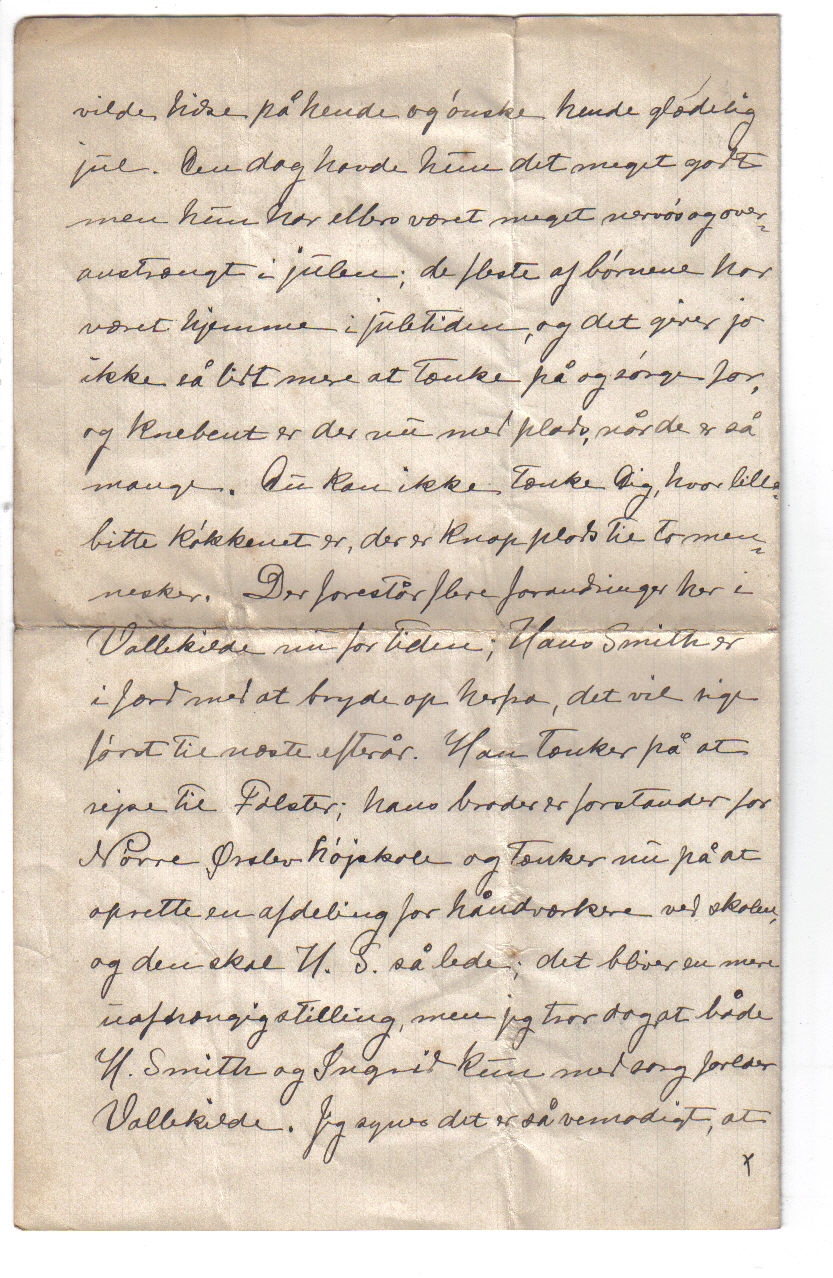 vilde hilse på hende og ønske hende glædelig
jul. Den dag havde hun det meget godt
men hun har ellers været meget nervøs og over-
anstrængt i julen; de fleste af børnene har
været hjemme i juletiden, og det giver jo
ikke så lidt mere at tænke på og sørge for,
og knebent er der nu med plads, når de er så
mange. Du kan ikke tænke Dig, hvor lille-
bitte køkkenet er, der er knap plads til to men-
nesker. Der forestår flere forandringer her i
Vallekilde nu for tiden; Hans Smith er
i færd med at bryde op herfra, det vil sige
først til næste efterår. Han tænker på at
rejse til Falster; hans broder er forstander for
Nørre Ørslev højskole og tænker nu på at
oprette en afdeling for håndværkere ved skolen,
og den skal H. S. så lede; det bliver en mere
uafhængig stilling, men jeg tror dog at både
H. Smith og Ingrid kun med sorg forlader
Vallekilde. Jeg synes det er så vemodigt, at
x